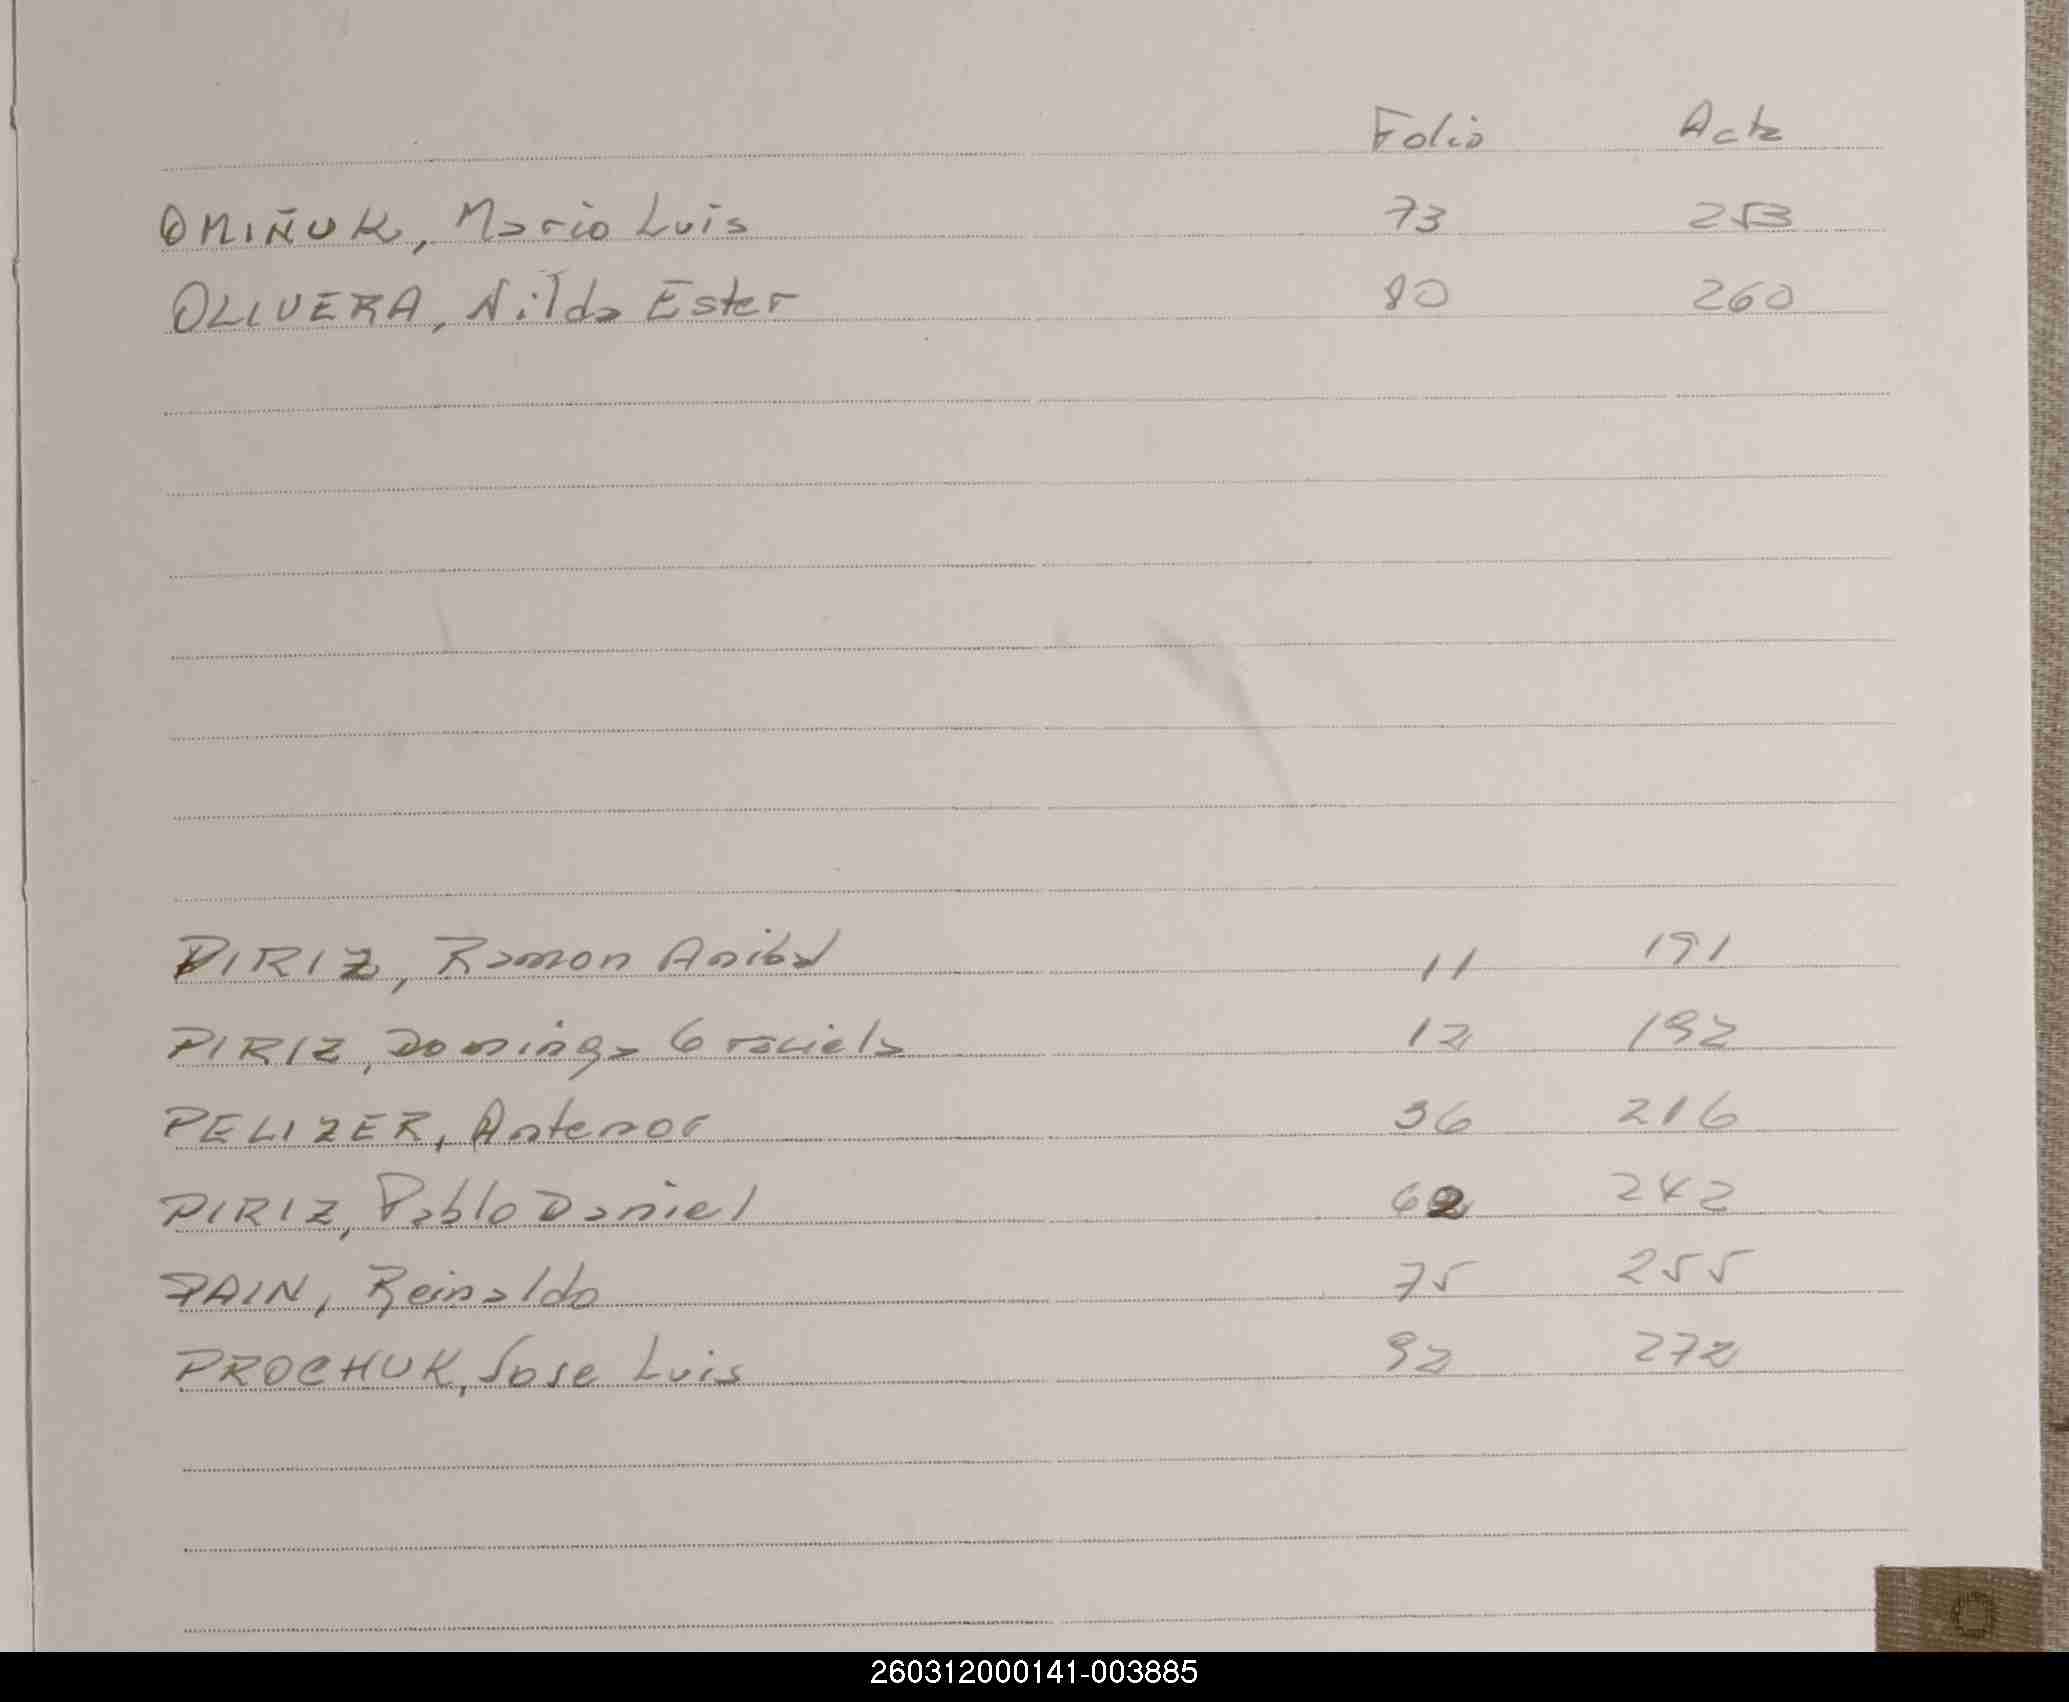 Folio Acta
OMIÑUK, Mario Luis 73 253
OLIVERA, Nilda Ester 80 260
PIRIZ, Ramon Anibal 11 191
PIRIZ, Dominga Graciela 12 192
PELIZER, Antenor 36 216
PIRIZ, Pablo Daniel 62 242
PAIN, Reinaldo 75 255
PROCHUK, Jose Luis 92 272
260312000141-003885